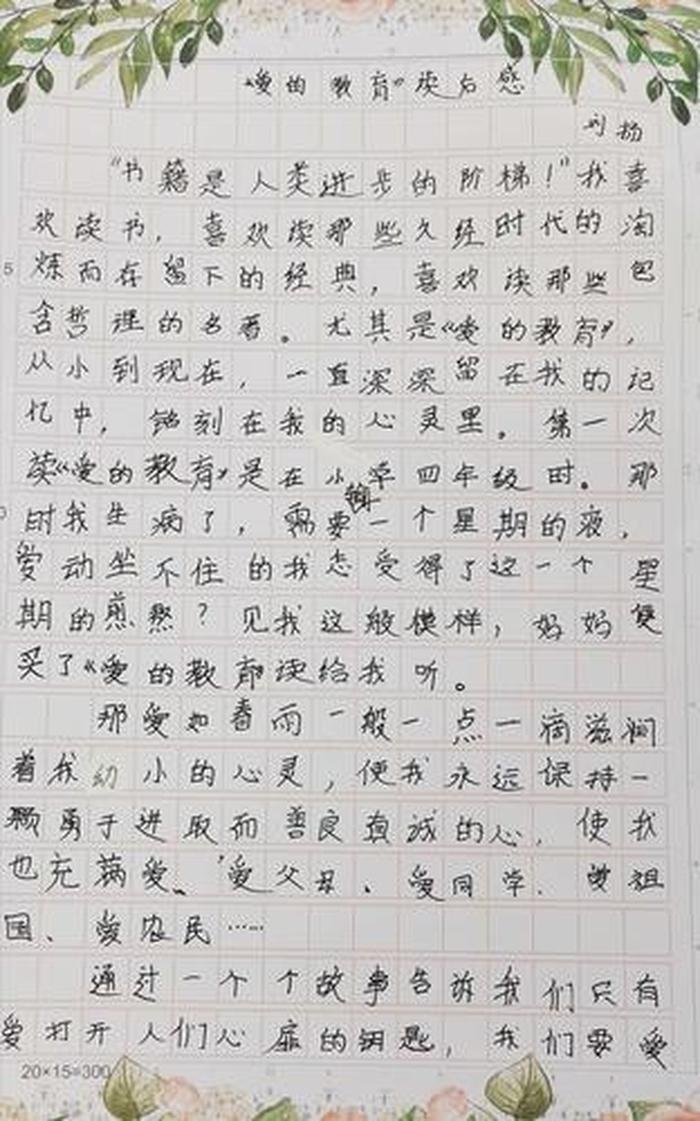 《爱的教育》读后感
刘扬
“书籍是人类进步的阶梯！”我喜
欢读书，喜欢读那些久经时代的淘
5
炼而存留下的经典，喜欢读那些包
含哲理的名著。尤其是《爱的教育》，
从小到现在，一直深深留在我的记
忆中，铭刻在我的心灵里。第一次
读《爱的教育》是在小学四年级时。那
时我生病了，需要输一个星期的液，
爱动坐不住的我怎受得了这一个星
期的煎熬？见我这般模样，妈妈便
买了《爱的教育》读给我听。
那爱如春雨一般一点一滴滋润
着我幼小的心灵，使我永远保持一
颗勇于进取而善良真诚的心，使我
也充满爱、爱父母、爱同学、爱祖
国、爱农民……
通过一个个故事告诉我们只有
爱打开人们心扉的钥匙，我们要爱
20×15=300